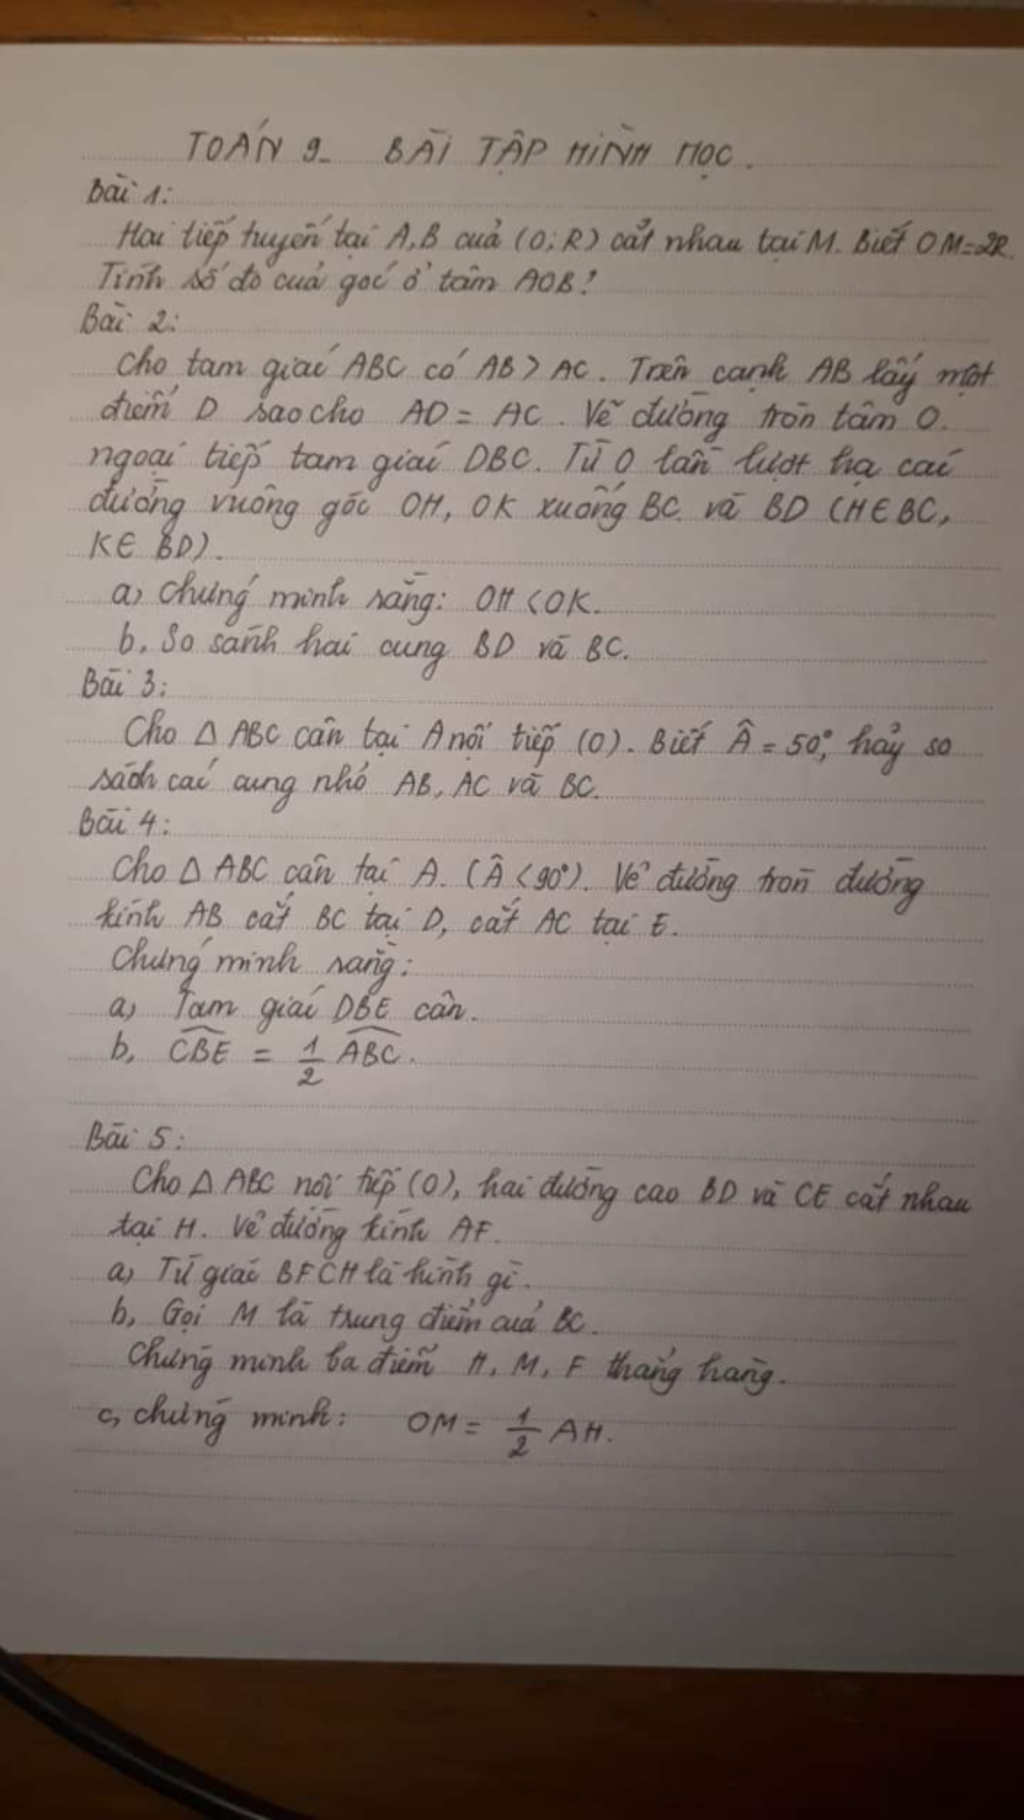 TOÁN 9_ BÀI TẬP HÌNH HỌC.
Bài 1:
Hai tiếp tuyến tại A,B của (O;R) cắt nhau tại M. Biết OM=2R.
Tính số đo của góc ở tâm AOB!
Bài 2:
Cho tam giác ABC có AB > AC. Trên cạnh AB lấy một
điểm D sao cho AD = AC. Vẽ đường tròn tâm O.
ngoại tiếp tam giác DBC. Từ O lần lượt hạ các
đường vuông góc OH, OK xuống BC và BD (H∈BC,
K∈ BD).
a, Chứng minh rằng: OH < OK.
b, So sánh hai cung BD và BC.
Bài 3:
Cho Δ ABC cân tại A nội tiếp (O). Biết Â = 50°, hãy so
sách các cung nhỏ AB, AC và BC.
Bài 4:
Cho Δ ABC cân tại A. (Â < 90°). Vẽ đường tròn đường
kính AB cắt BC tại D, cắt AC tại E.
Chứng minh rằng:
a, Tam giác DBE cân.
b, \widehat{CBE} = 1/2 \widehat{ABC}.
Bài 5:
Cho Δ ABC nội tiếp (O), hai đường cao BD và CE cắt nhau
tại H. Vẽ đường kính AF.
a, Tứ giác BFCH là hình gì.
b, Gọi M là trung điểm của BC.
Chứng minh ba điểm H, M, F thẳng hàng.
c, chứng minh: OM = 1/2 AH.